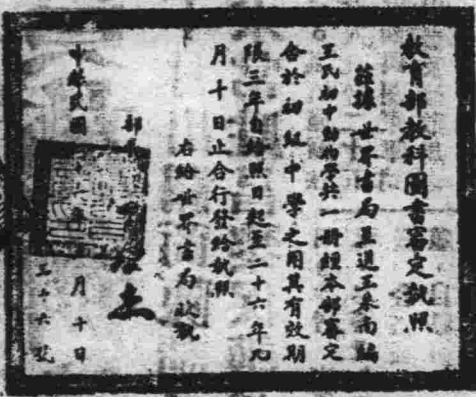 教育部教科圖書審定執照
茲據世界書局呈送王采南編
王氏初中動物學共一冊經本部審定
合於初級中學之用其有效期
限三年自給照日起至二十六年九
月十日止合行發給執照
右給世界書局收執
部長
中華民國 年 月十日